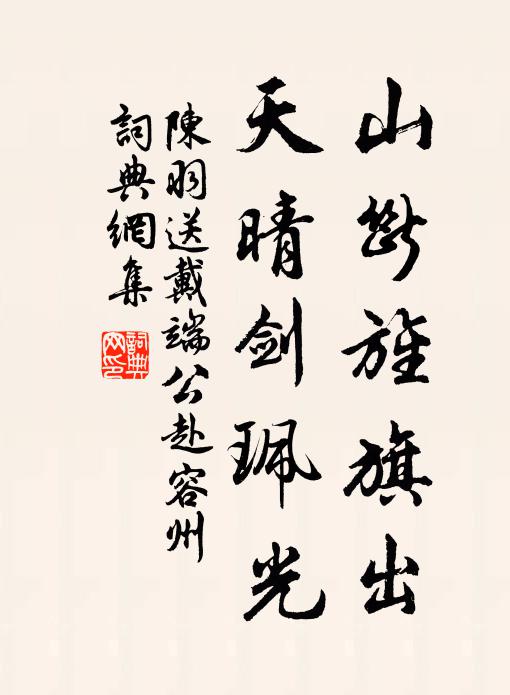 山斷旌旗出
天晴剑珮光
陳羽送戴端公赴容州
詞典網集
詞典
网印